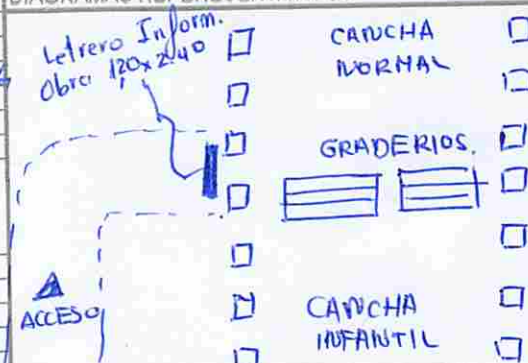 Letrero Inform.
Obra 1,20 x 2.40
CANCHA
NORMAL
GRADERIOS.
ACCESO
CANCHA
INFANTIL